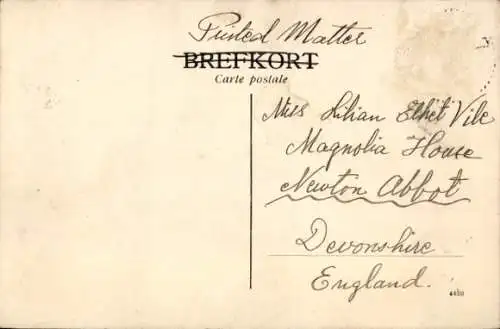 Printed Matter
BREFKORT
Carte postale
Miss Lilian Ethel Vile
Magnolia House
Newton Abbot
Devonshire
England.
4480